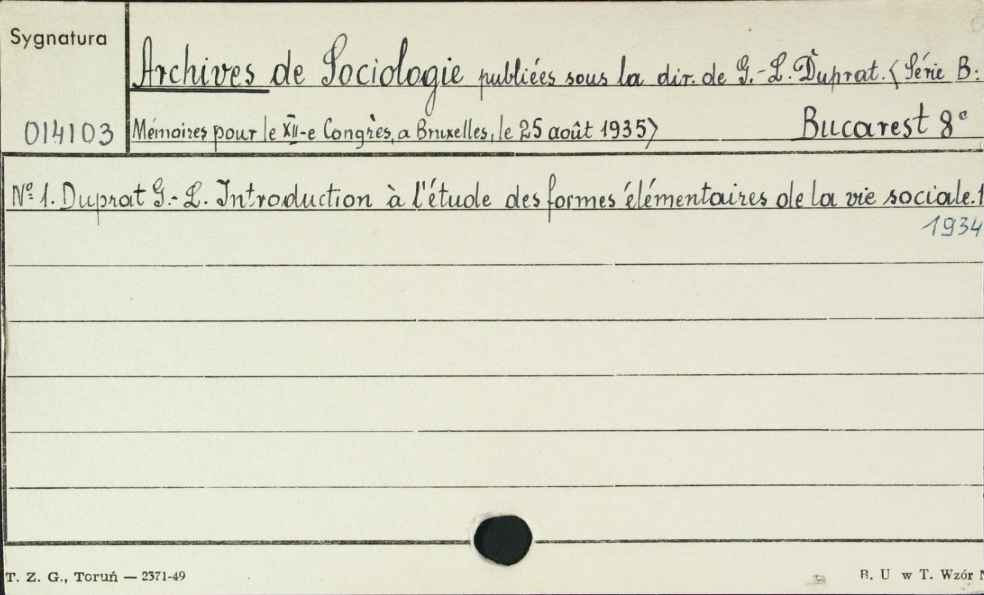 Sygnatura
014103
Archives de Sociologie publiées sous la dir. de G.-L. Duprat. (Série B:
Mémoires pour le XII-e Congrès, a Bruxelles, le 25 août 1935)
Bucarest 8°
Nº 1. Duprat G.-L. Introduction à l'étude des formes élémentaires de la vie sociale.
1934
T. Z. G., Toruń — 2371-49
B. U w T. Wzór